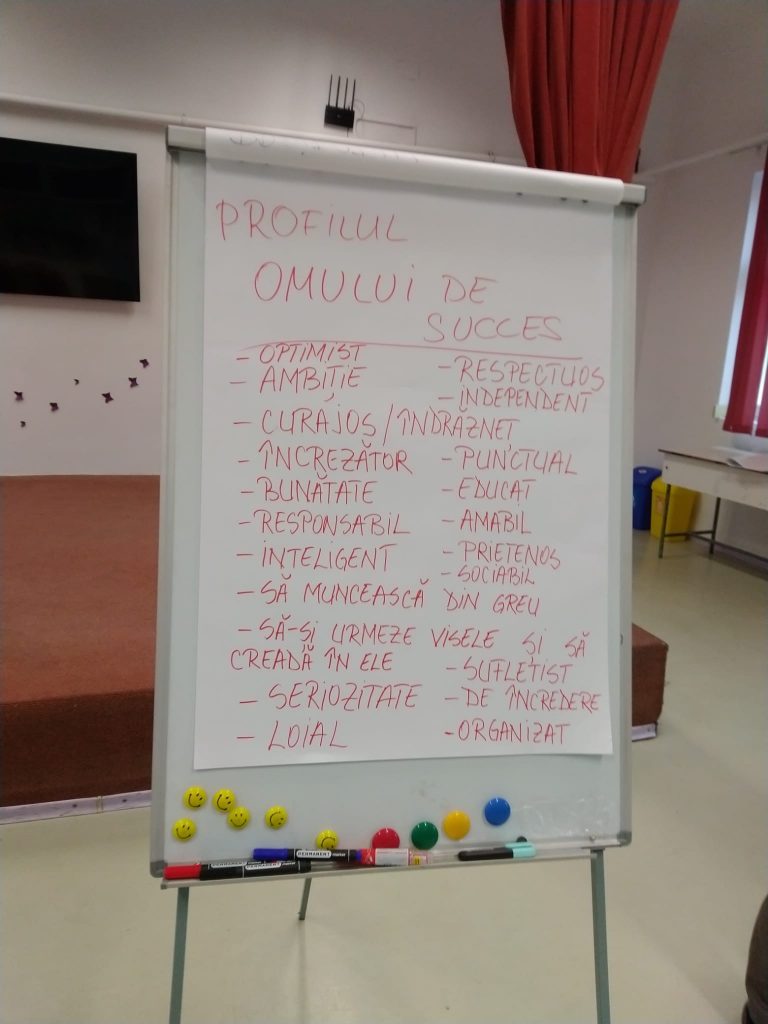 PROFILUL
OMULUI DE
SUCCES
- OPTIMIST
- AMBIȚIE
- RESPECTUOS
- INDEPENDENT
- CURĂJOS / ÎNDRĂZNEȚ
- ÎNCREZĂTOR
- PUNCTUAL
- BUNĂTATE
- EDUCAT
- RESPONSABIL
- AMABIL
- INTELIGENT
- PRIETENOS
- SOCIABIL
- SĂ MUNCEASCĂ DIN GREU
- SĂ-ȘI URMEZE VISELE ȘI SĂ
CREADĂ ÎN ELE
- SUFLETIST
- SERIOZITATE
- DE ÎNCREDERE
- LOIAL
- ORGANIZAT
PERMANENT
PERMANENT